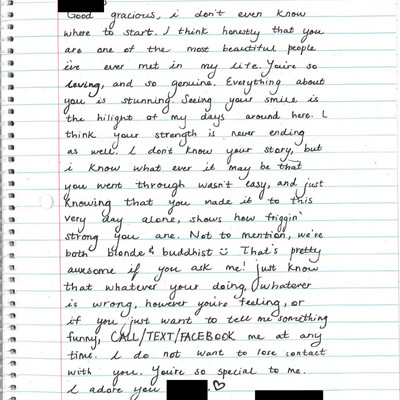 Good gracious, i don't even know
where to start. I think honestly that you
are one of the most beautiful people
i've ever met in my life. You're so
loving, and so genuine. Everything about
you is stunning. Seeing your smile is
the hilight of my days around here. I
think your strength is never ending
as well. I don't know your story, but
i know what ever it may be that
you went through wasn't easy, and just
knowing that you made it to this
very day alone, shows how friggin'
strong you are. Not to mention, we're
both blonde & buddhist ☺ That's pretty
awesome if you ask me! just know
that whatever your doing, whatever
is wrong, however you're feeling, or
if you just want to tell me something
funny, CALL/TEXT/FACEBOOK me at any
time. I do not want to lose contact
with you. You're so special to me.
I adore you . ♡